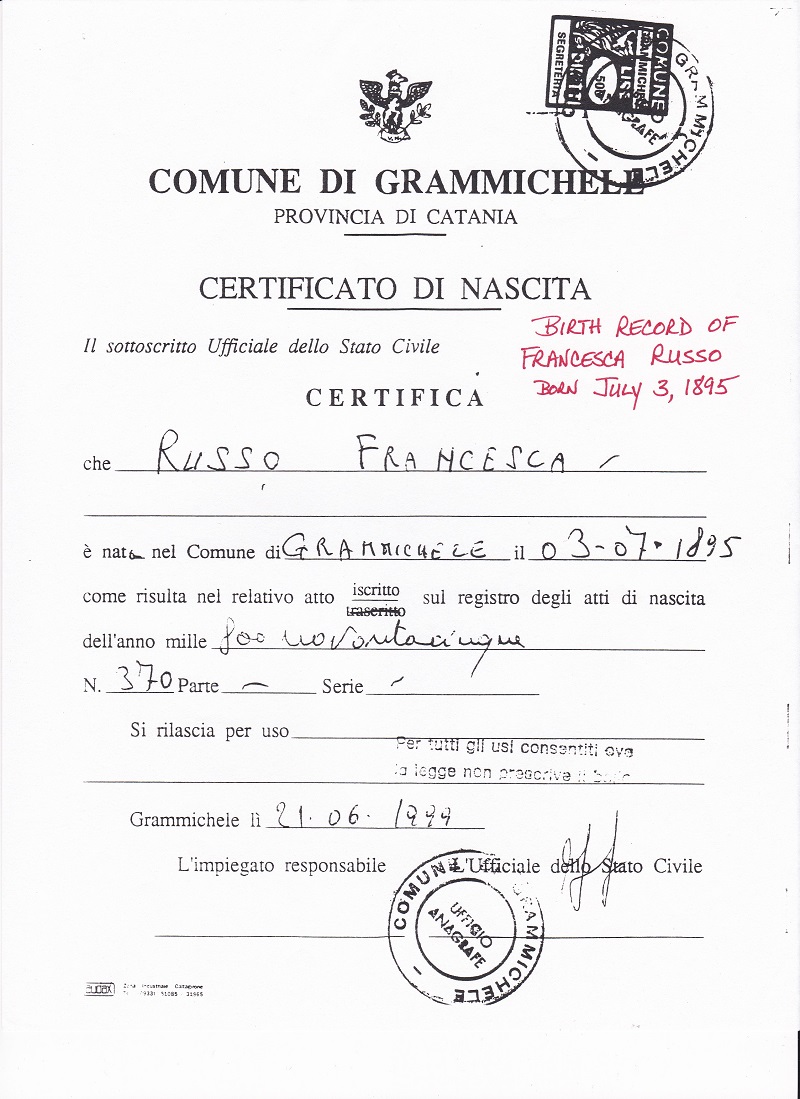 COMUNE DI GRAMMICHELE
SEGRETERIA
500
COMUNE DI GRAMMICHELE
PROVINCIA DI CATANIA
CERTIFICATO DI NASCITA
BIRTH RECORD OF
FRANCESCA RUSSO
BORN JULY 3, 1895
Il sottoscritto Ufficiale dello Stato Civile
CERTIFICA
che RUSSO FRANCESCA
è nata nel Comune di GRAMMICHELE il 03-07-1895
come risulta nel relativo atto iscritto trascritto sul registro degli atti di nascita
dell'anno mille 800 novantacinque
N. 370 Parte — Serie -
Si rilascia per uso
Per tutti gli usi consentiti ove
la legge non prescrive il bollo
Grammichele lì 21.06.1999
L'impiegato responsabile L'Ufficiale dello Stato Civile
COMUNE GRAMMICHELE
UFFICIO
ANAGRAFE
Zona Industriale Caltagirone